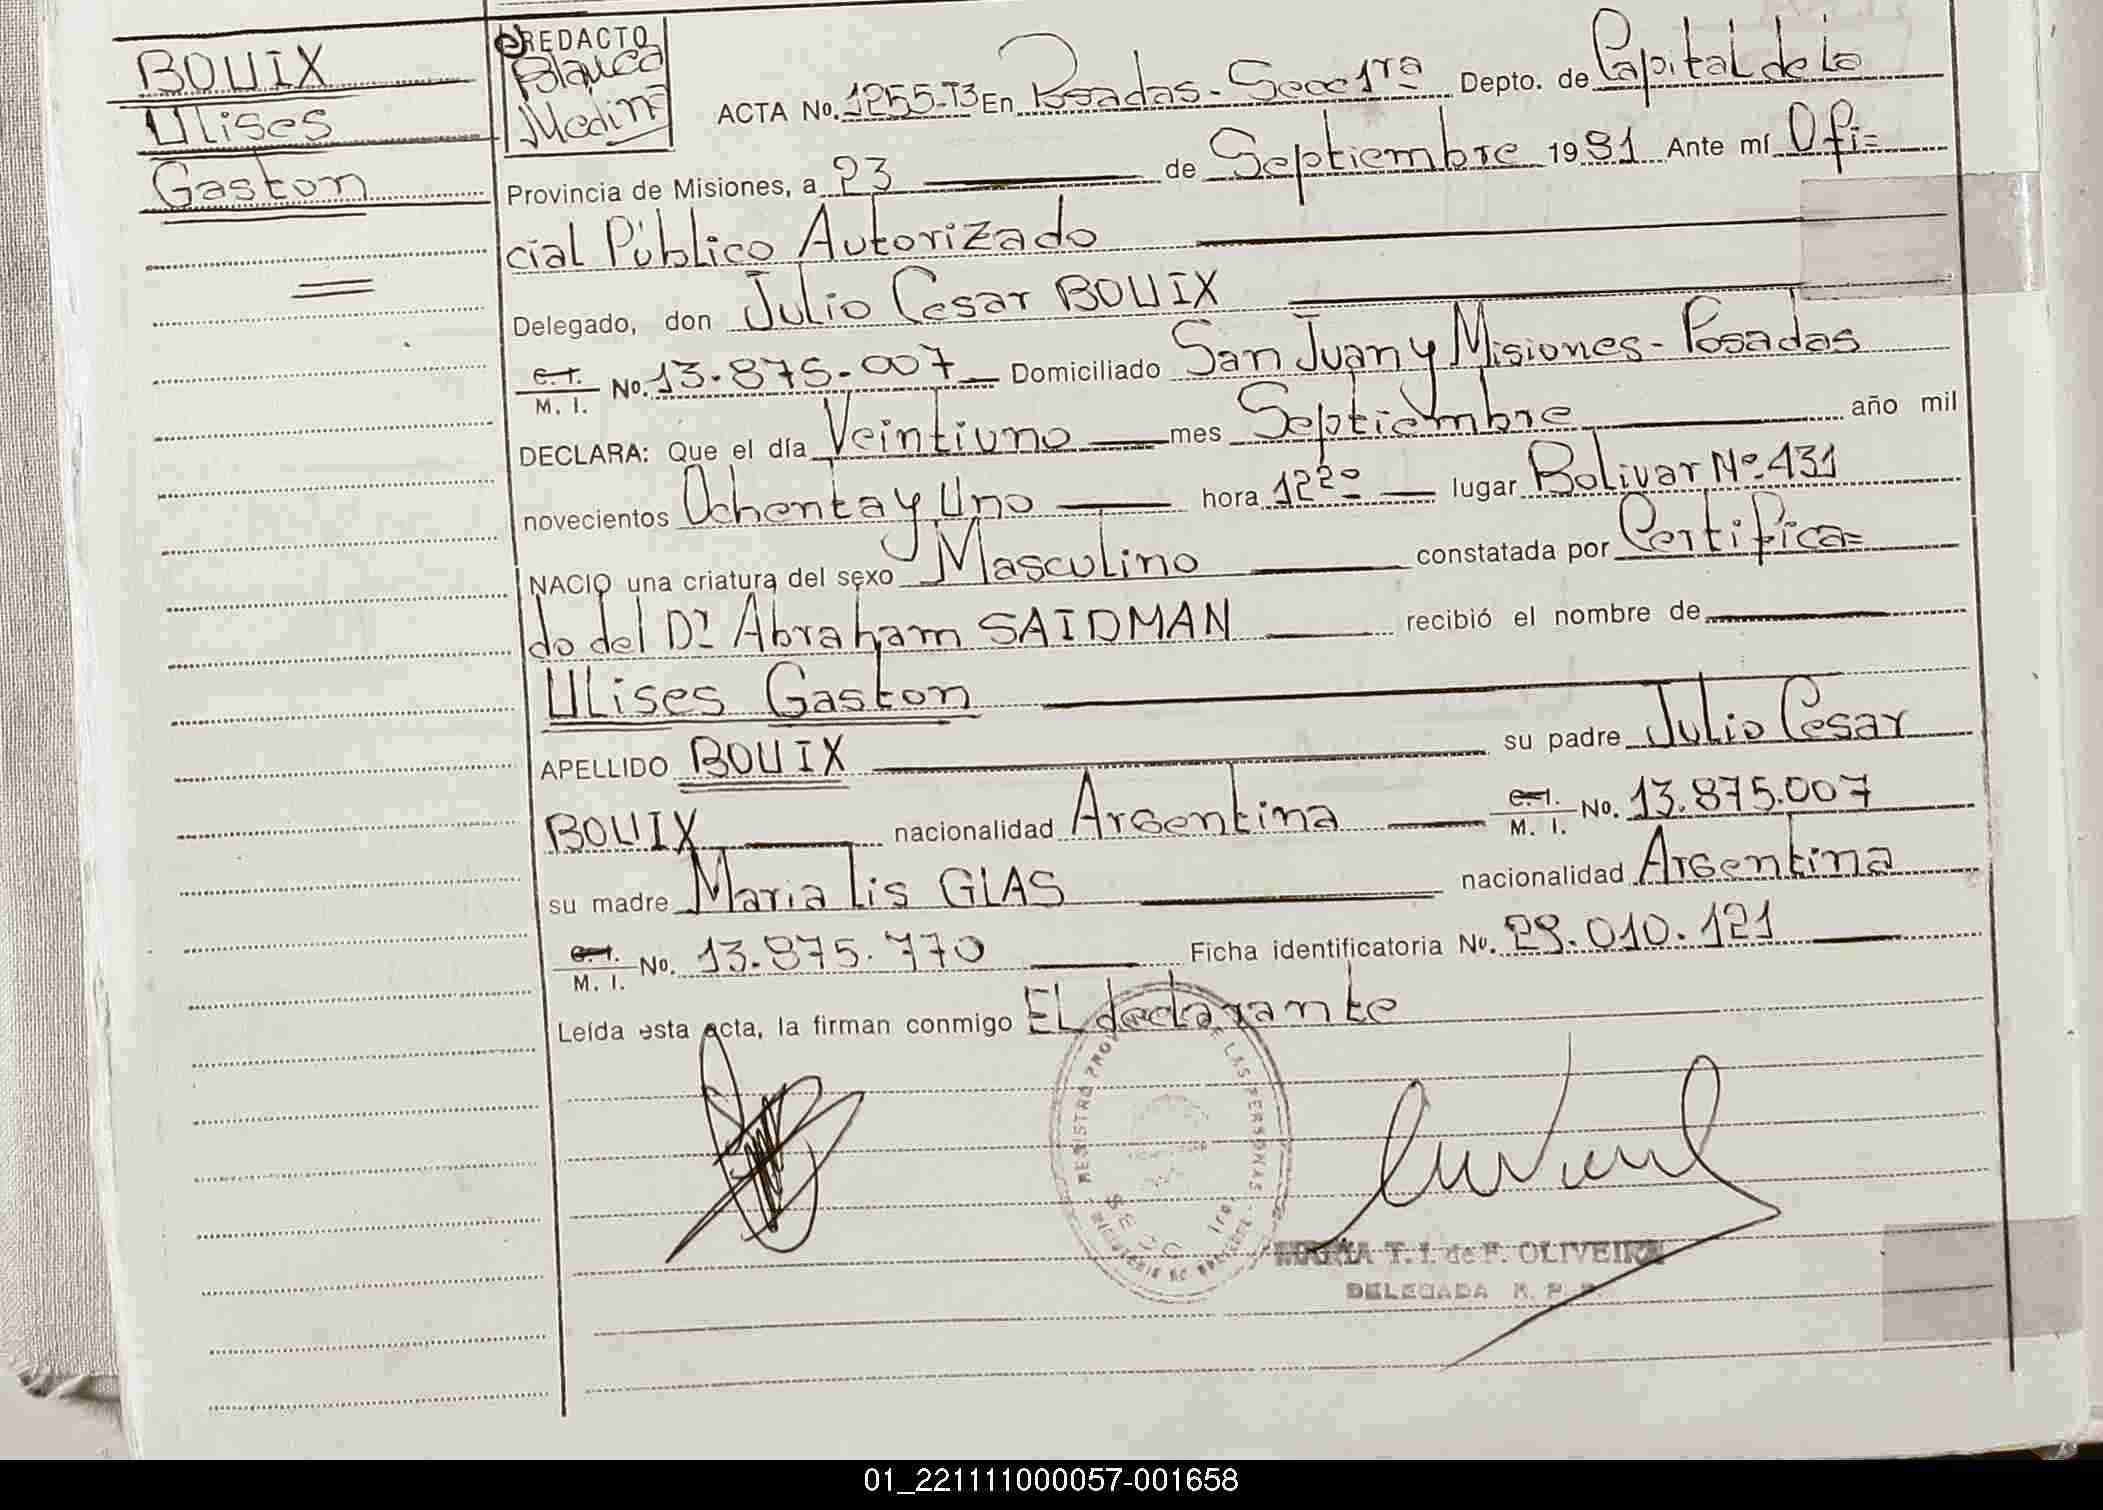 BOUIX
Ulises
Gaston
REDACTO
Blanca
Medina
ACTA No. 1255-T3 En Posadas - Secc 1ra Depto. de Capital de la
Provincia de Misiones, a 23 de Septiembre 1981 Ante mí Ofi=
cial Público Autorizado
Delegado, don Julio Cesar BOUIX
C.I. M. I. No. 13.875.007 Domiciliado San Juan y Misiones - Posadas
DECLARA: Que el día Veintiuno mes Septiembre año mil
novecientos Ochenta y Uno hora 12²⁰ lugar Bolivar Nº 431
NACIO una criatura del sexo Masculino constatada por Certifica=
do del Dr Abraham SAIDMAN recibió el nombre de
Ulises Gaston
APELLIDO BOUIX su padre Julio Cesar
BOUIX nacionalidad Argentina C.I. M. I. No. 13.875.007
su madre Maria Lis GLAS nacionalidad Argentina
C.I. M. I. No. 13.875.770 Ficha identificatoria No. 29.010.121
Leída esta acta, la firman conmigo El declarante
REGISTRO PROV LAS PERSONAS
SECC 1ra
MARIA T. I. de F. OLIVEIRA
DELEGADA R. P. P.
01_221111000057-001658